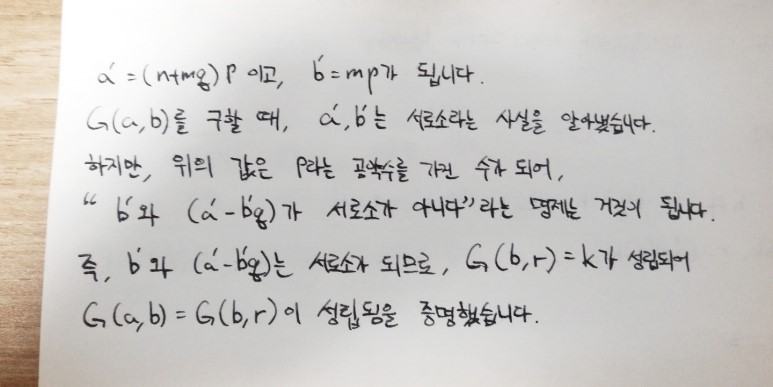 a' = (n+mq)p 이고, b' = mp가 됩니다.
G(a,b)를 구할 때, a', b'는 서로소라는 사실을 알아냈습니다.
하지만, 위의 값은 p라는 공약수를 가진 수가 되어,
“ b'와 (a'-b'q)가 서로소가 아니다”라는 명제는 거짓이 됩니다.
즉, b'와 (a'-b'q)는 서로소가 되므로, G(b,r)=k가 성립되어
G(a,b) = G(b,r)이 성립됨을 증명했습니다.